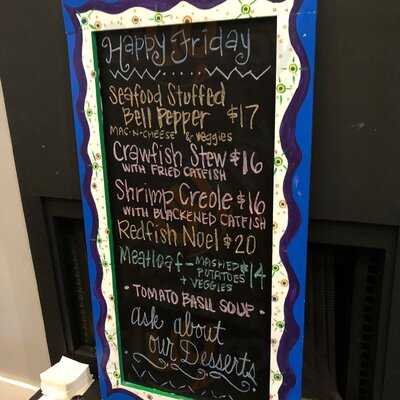 Happy Friday
Seafood Stuffed
Bell Pepper $17
MAC-N-CHEESE & Veggies
Crawfish Stew $16
WITH FRIED CATFISH
Shrimp Creole $16
WITH BLACKENED CATFISH
Redfish Noel $20
Meatloaf - MASHED
POTATOES $14
+ VEGGIES
• TOMATO BASIL SOUP •
ask about
our Desserts